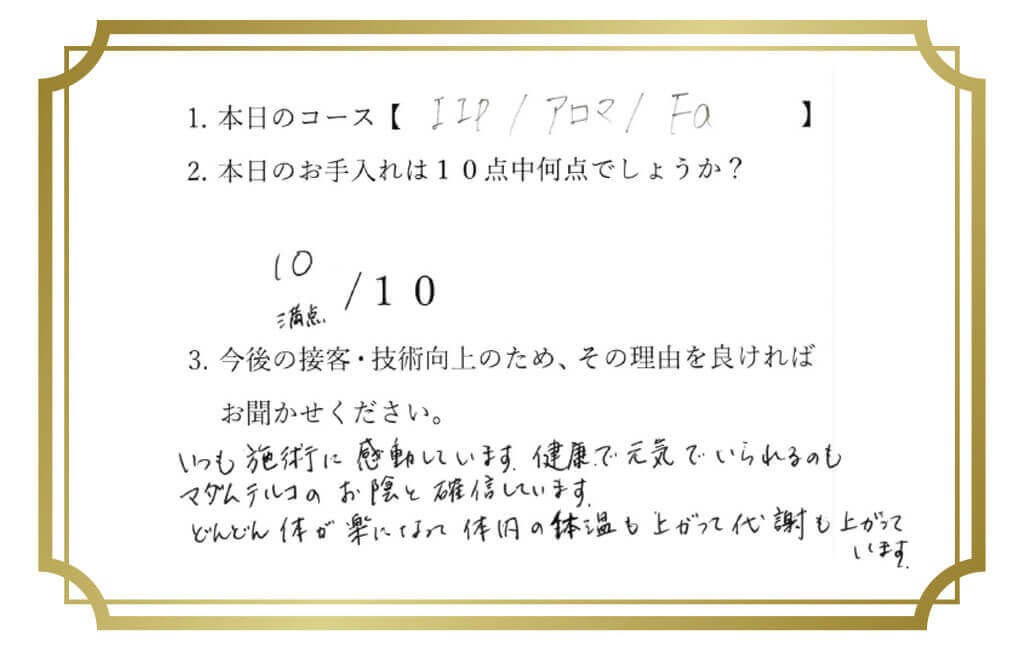 1. 本日のコース【 IIP / アロマ / Fa 】
2. 本日のお手入れは１０点中何点でしょうか？
10
満点 /１０
3. 今後の接客・技術向上のため、その理由を良ければ
お聞かせください。
いつも施術に感動しています。健康で元気でいられるのも
マダムテルコのお陰と確信しています。
どんどん体が楽になって体内の体温も上がって代謝も上がって
います。